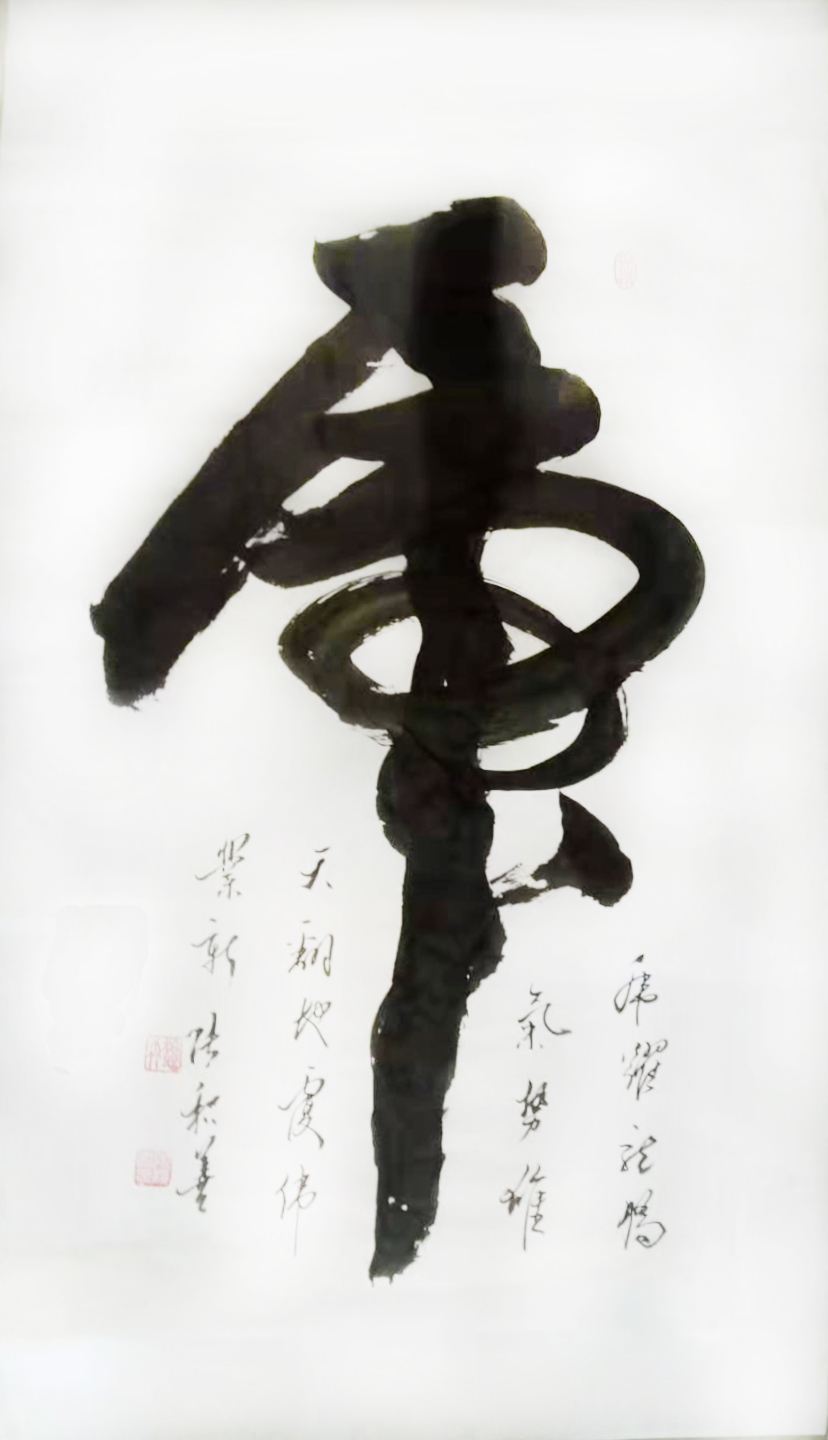 虎
虎躍龍騰
氣勢雄
天翻地覆偉
業新 善